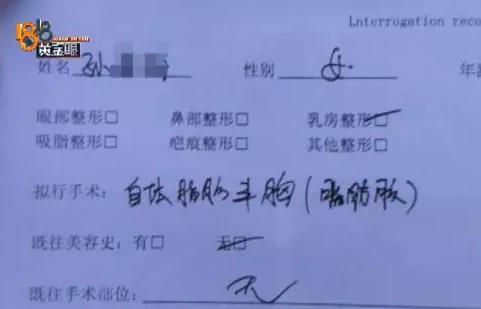 188
黄金眼
Interrogation reco
姓名 孙 性别 女 年
眼部整形□ 鼻部整形□ 乳房整形□
吸脂整形□ 疤痕整形□ 其他整形□
拟行手术: 自体脂肪丰胸(脂肪胶)
既往美容史: 有□ 无□
既往手术部位: 无